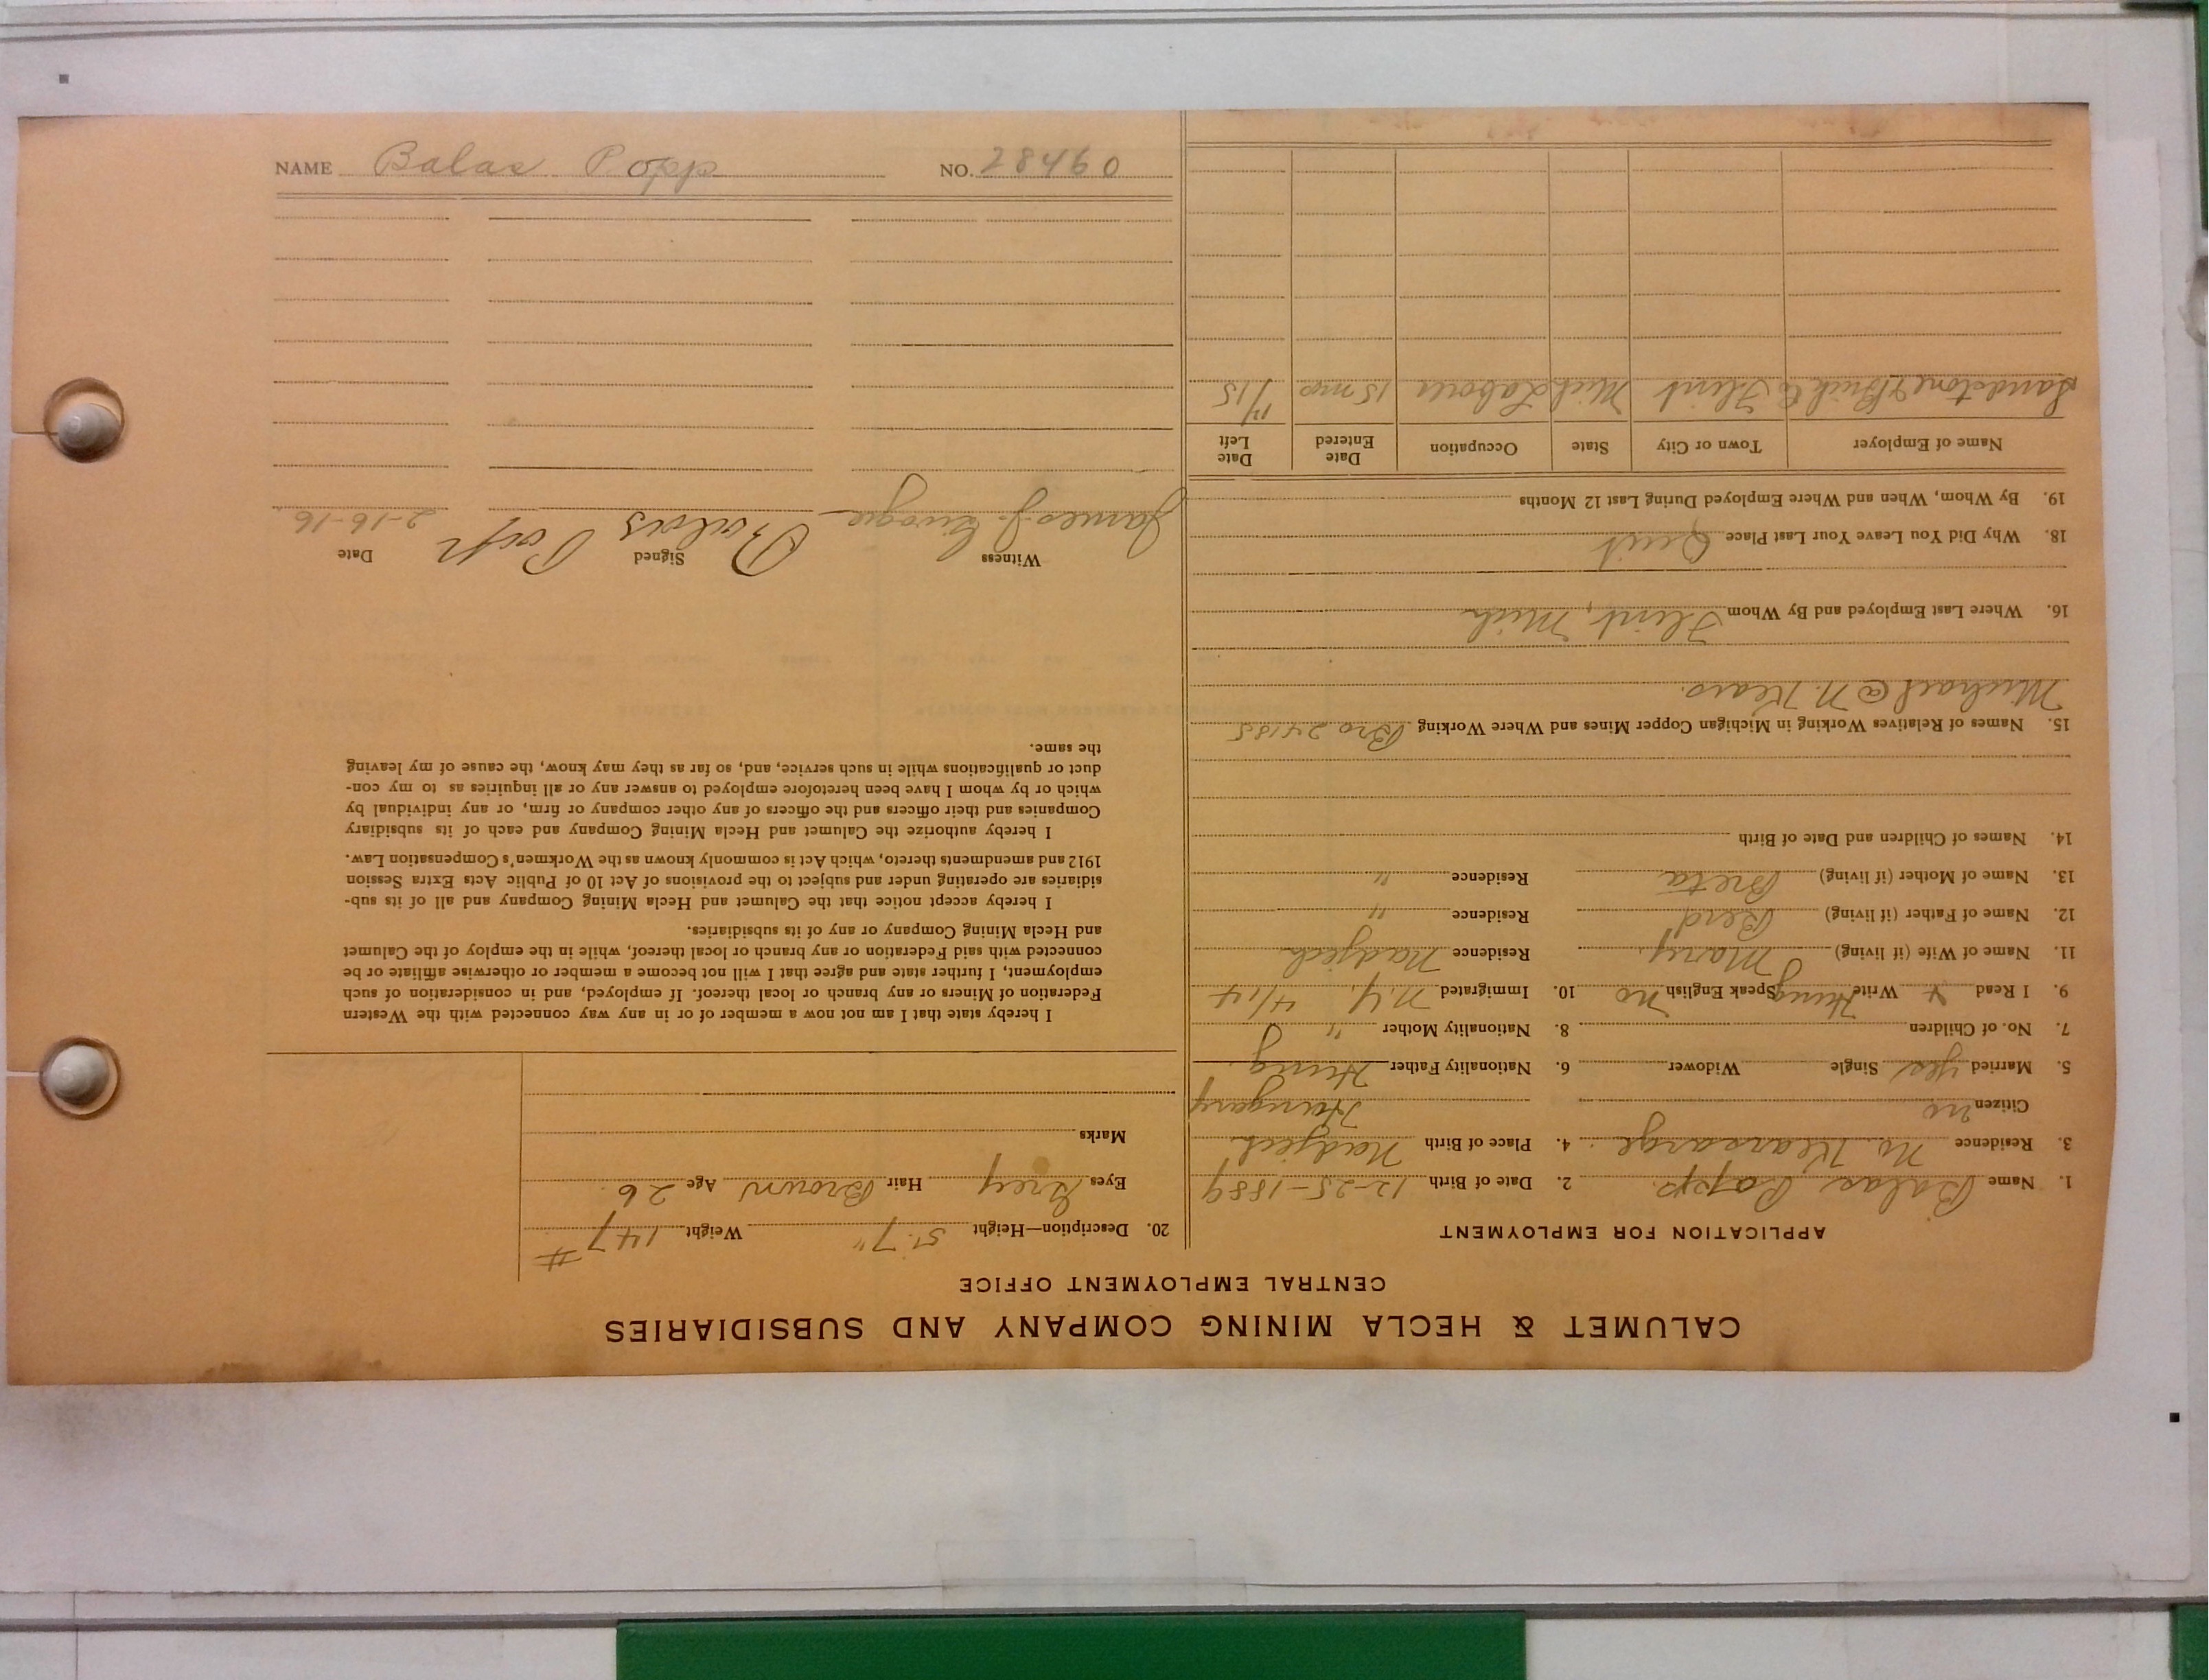 CALUMET & HECLA MINING COMPANY AND SUBSIDIARIES
CENTRAL EMPLOYMENT OFFICE
APPLICATION FOR EMPLOYMENT
1. Name Balas Popp. 2. Date of Birth 12-25-1889
3. Residence No. Kearsarge. 4. Place of Birth Nadjech
Citizen no Hungary
5. Married yes Single Widower 6. Nationality Father Hung
7. No. of Children 8. Nationality Mother "
9. I Read & Write Hung Speak English no 10. Immigrated N.Y. 4/14
11. Name of Wife (if living) Mary. Residence Nadjech
12. Name of Father (if living) Berd Residence "
13. Name of Mother (if living) Breta Residence "
14. Names of Children and Date of Birth
15. Names of Relatives Working in Michigan Copper Mines and Where Working Bro 24185
Michael @ N. Kears.
16. Where Last Employed and By Whom Flint, Mich
18. Why Did You Leave Your Last Place Quit
19. By Whom, When and Where Employed During Last 12 Months
Name of Employer Town or City State Occupation Date Entered Date Left
Sandstone & Brick Co Flint Mich Laborer 15 mos 11/15
20. Description—Height 5' 7" Weight 147 #
Eyes Grey Hair Brown Age 26
Marks
I hereby state that I am not now a member of or in any way connected with the Western
Federation of Miners or any branch or local thereof. If employed, and in consideration of such
employment, I further state and agree that I will not become a member or otherwise affiliate or be
connected with said Federation or any branch or local thereof, while in the employ of the Calumet
and Hecla Mining Company or any of its subsidiaries.
I hereby accept notice that the Calumet and Hecla Mining Company and all of its sub-
sidiaries are operating under and subject to the provisions of Act 10 of Public Acts Extra Session
1912 and amendments thereto, which Act is commonly known as the Workmen's Compensation Law.
I hereby authorize the Calumet and Hecla Mining Company and each of its subsidiary
Companies and their officers and the officers of any other company or firm, or any individual by
which or by whom I have been heretofore employed to answer any or all inquiries as to my con-
duct or qualifications while in such service, and, so far as they may know, the cause of my leaving
the same.
Witness Signed Date
James J. Balas Popp 2-16-16
NAME Balas Popp NO. 28460